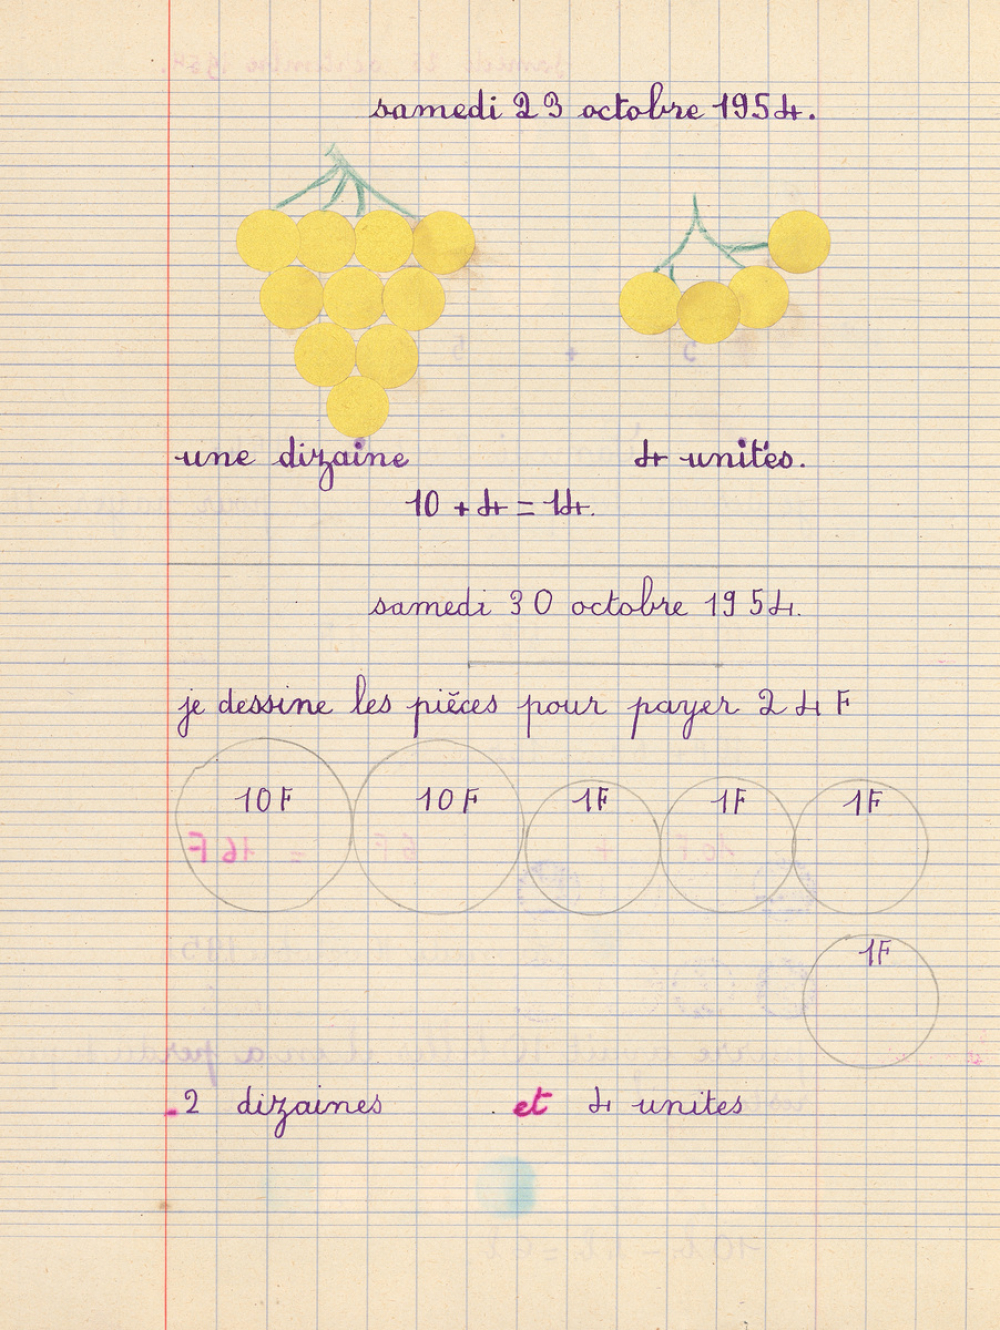 samedi 23 octobre 1954.
une dizaine 4 unités.
10 + 4 = 14.
samedi 30 octobre 1954.
je dessine les pièces pour payer 24 F
10 F 10 F 1F 1F 1F
1F
2 dizaines et 4 unites